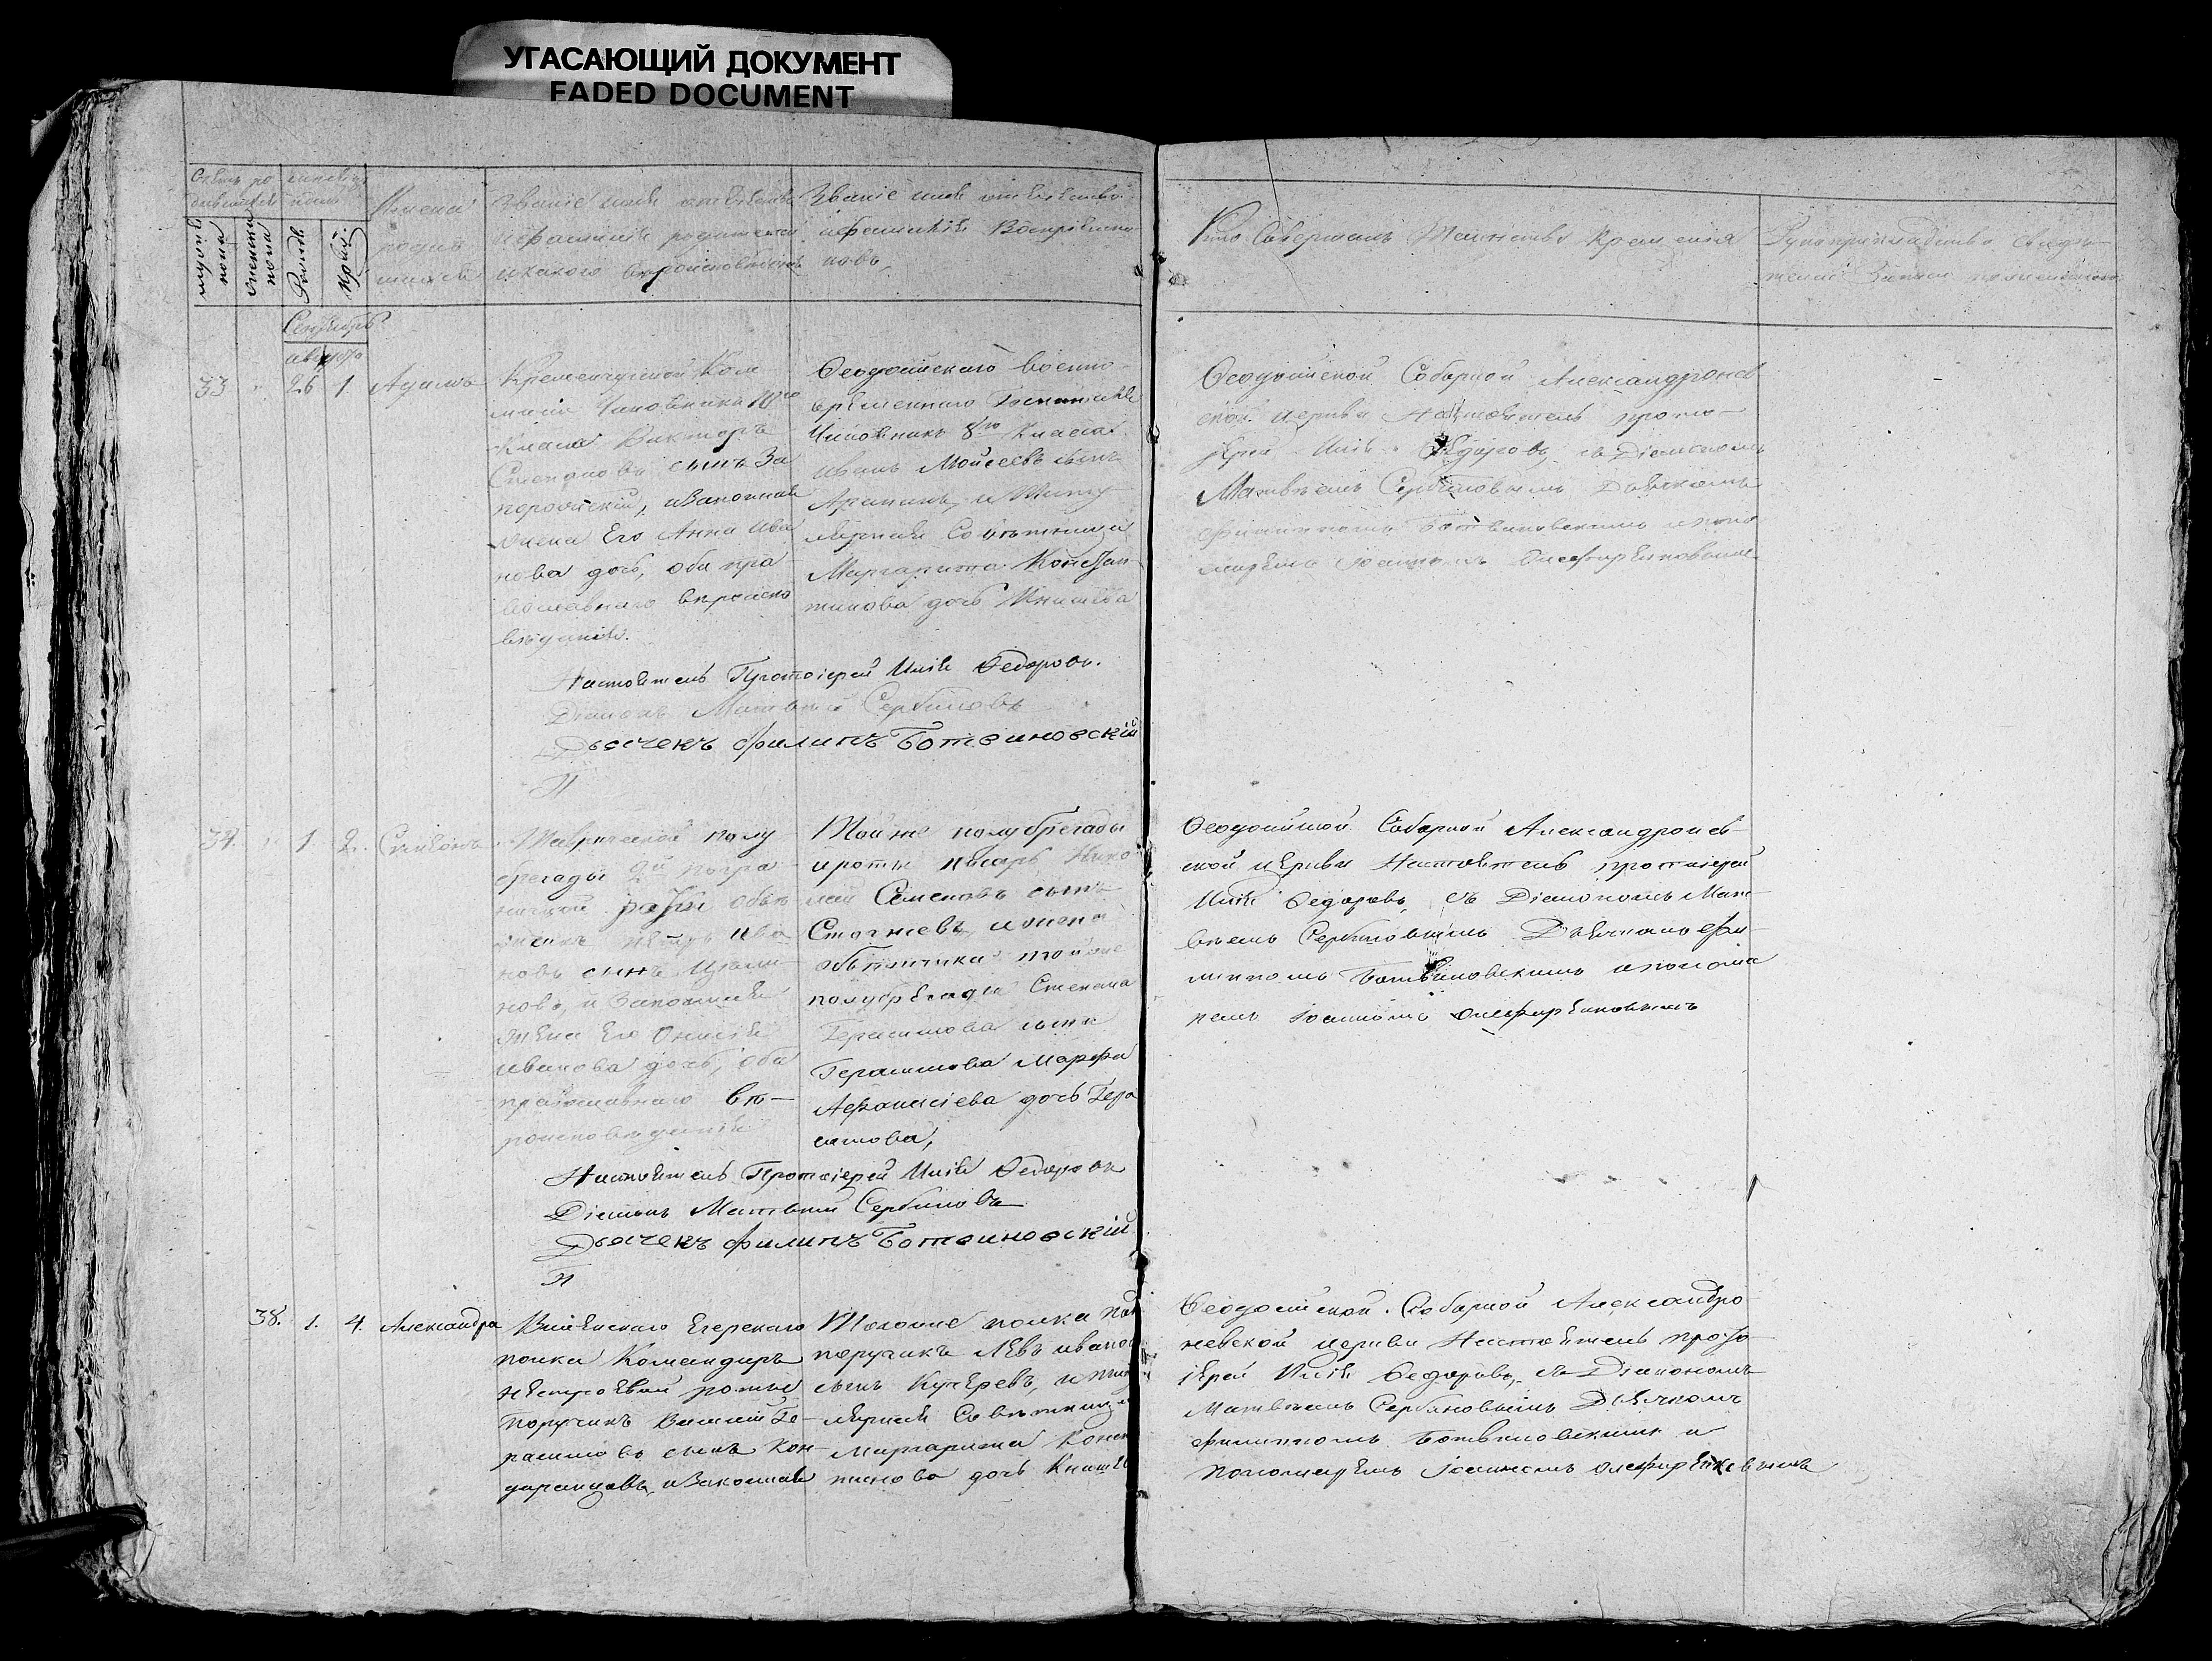 УГАСАЮЩИЙ ДОКУМЕНТ
FADED DOCUMENT
мужеска пола
женска пола
Имена родив
Званіе имя отечество
и фамилія родителей
и какого вѣроисповѣданія
Званіе имя отечество
и фамилія Воспріемни
ковъ,
Кто Совершалъ Таинство Крещенія
Рукоприкладство свидѣ
телей Записи по желанію
Сентябрь
августа
33. 26 1
Кременчугской Ком
мисіи Чиновника 10го
Класса Викторъ
Степановъ сынъ За
порожскій, и Законная
жена Его Анна Ива
нова дочь, оба пра
вославнаго вѣроиспо
вѣданія.
Ѳеодосійскаго военно
временнаго
Чиновникъ 8го Класса
Иванъ Моисеевъ сынъ
и Титу
лярная Совѣтница
Маргарита Констан
тинова дочь
Ѳеодосійской Соборной Александронев
ской церкви Настоятель прото
іерей Илія Ѳедоровъ, съ Діакономъ
Матвѣемъ Сербиновымъ Дьячкомъ
Филиппомъ Ботвиновскимъ и поно
маремъ Іоанномъ Олефиренковымъ
Настоятель Протоіерей Илія Ѳедоровъ.
Діаконъ Матвѣй Сербиновъ
Дьячекъ Филипъ Ботвиновскій
П
34. 1. 2. Симеонъ
Таврической полу
бригады 2й погра
ничной роты объѣ
Ива
новъ сынъ
новъ, и Законная
жена Его Онисія
Иванова дочь, оба
православнаго вѣ—
роисповѣданія
Той же полубригады
и роты писарь Нико
лай Семеновъ сынъ
Стогніевъ, и жена
объѣщика той же
полубригады Степана
Герасимова сына
Герасимова Марфа
Афанасіева дочь Гера
симова,
Ѳеодосійской Соборной Александронев-
ской церкви Настоятель протоіерей
Илія Ѳедоровъ, съ Діакономъ Мат
вѣемъ Сербиновымъ Дьячкомъ Фи
липпомъ Ботвиновскимъ и понома
ремъ Іоанномъ Олефиренковымъ
Настоятель Протоіерей Илія Ѳедоровъ
Діаконъ Матвѣй Сербиновъ
Дьячекъ Филипъ Ботвиновскій
П
38. 1. 4. Александра
Виленскаго Егерскаго
полка Командиръ
нестроевой роты
Поручикъ Василій Ге
расимовъ сынъ Кон-
и Законная
Того же полка под
поручикъ Левъ Ивано
сынъ Кучеревъ, и титу
лярная Совѣтница
Маргарита Конс
тинова дочь
Ѳеодосійской Соборной Александро
невской церкви Настоятель прото
іерей Илія Ѳедоровъ, съ Діакономъ
Матвѣемъ Сербиновымъ Дьячкомъ
Филиппомъ Ботвиновскимъ и
пономаремъ Іоанномъ Олефиренковымъ